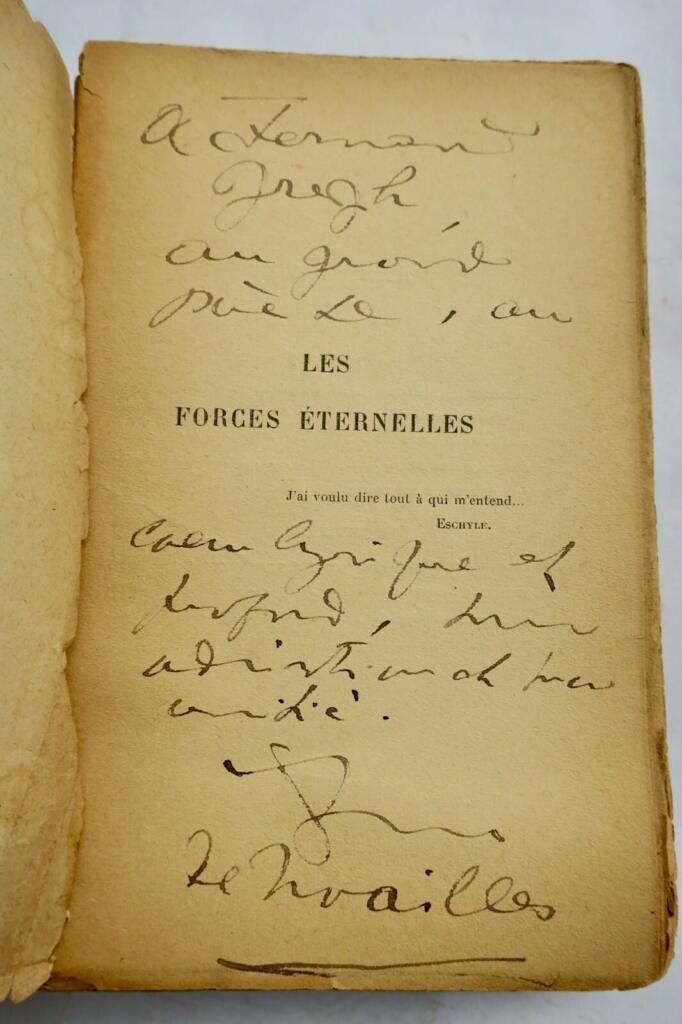 A Fernand
Gregh
au grand
poète, au
LES
FORCES ÉTERNELLES
J'ai voulu dire tout à qui m'entend...
ESCHYLE.
coeur lyrique et
profond, mon
admiration et mon
amitié.
Anna
de Noailles